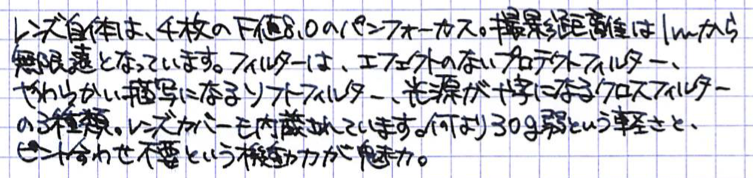 レンズ自体は、4枚のF値8.0のパンフォーカス。撮影距離は1mから
無限遠となっています。フィルターは、エフェクトのないプロテクトフィルター、
やわらかい描写になるソフトフィルター、光源が十字になるクロスフィルター
の3種類。レンズカバーも内蔵されています。何より30g弱という軽さと、
ピント合わせ不要という機動力が魅力。